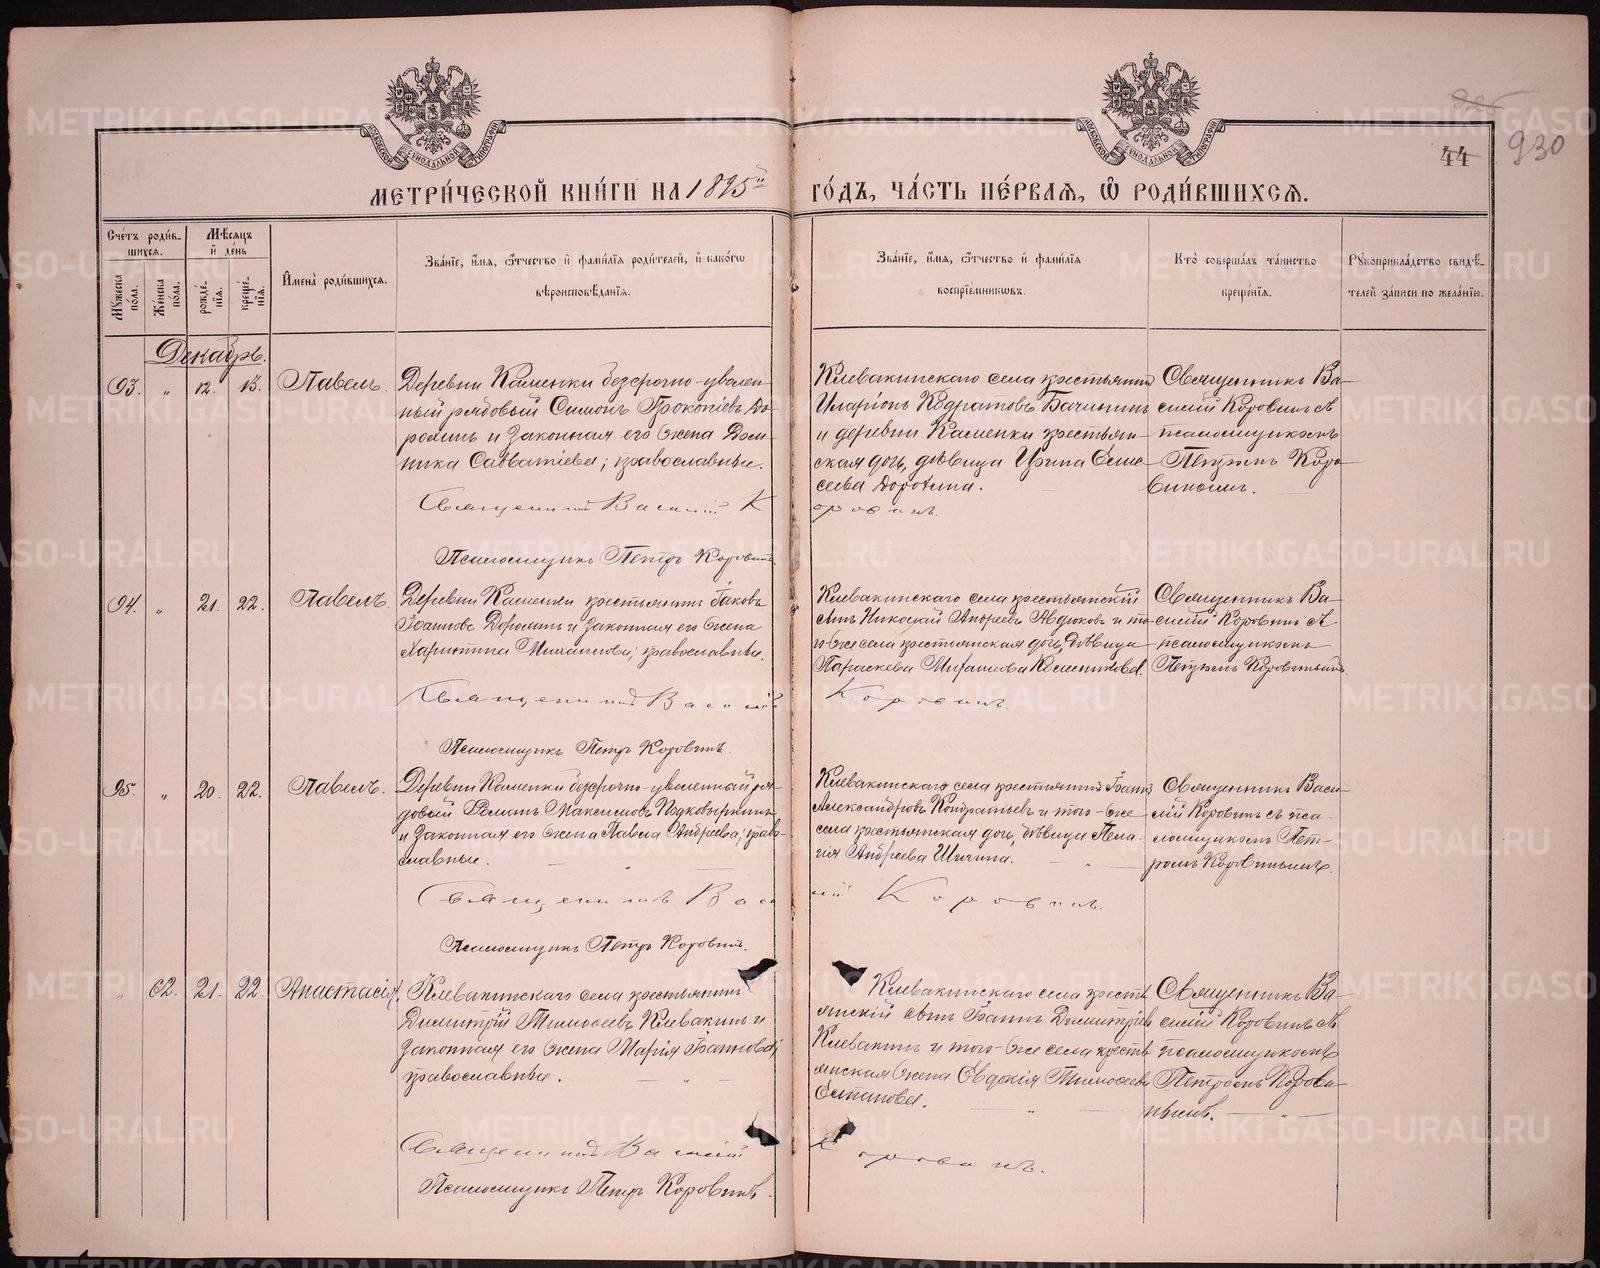 МЕТРИ́ЧЕСКОЙ КНИ́ГИ НА 1895й ГО́ДЪ, ЧА́СТЬ ПЕ́РВАЯ, Ѽ РОДИ́ВШИХСѦ.
44 930
Сче́тъ роди́в-
шихсѧ.
Мꙋ́жеска по́ла.
Же́нска по́ла.
Мѣ́сѧцъ
и҆ де́нь
рожде́-
нїѧ.
креще́-
нїѧ.
И҆мена̀ роди́вшихсѧ.
Зва́нїе, и҆́мѧ, ѻ҆́тчество и҆ фами́лїѧ роди́телей, и҆ како́гѡ
вѣроисповѣ́данїѧ.
Зва́нїе, и҆́мѧ, ѻ҆́тчество и҆ фами́лїѧ
воспрїе́мникѡвъ.
Кто̀ соверша́лъ та́инство
креще́нїѧ.
Рꙋкоприкла́дство свидѣ́-
телей за́писи по жела́нїю.
Декабрь.
93. " 12. 13. Павелъ.
Деревни Каменки безсрочно-уволен-
ный рядовый Симонъ Прокопіевъ До-
рохинъ и законная его жена Дом-
ника Савватіева; православные.
Клевакинскаго села крестьянинъ
Иларіонъ Кодратовъ Бачининъ
и деревни Каменки крестьян-
ская дочь, дѣвица Ирина Елис-
Священникъ Ва-
силій Коровинъ съ
псаломщикомъ
Петромъ Коро-
винымъ.
Священникъ Василій Коровинъ.
Псаломщикъ Петръ Коровинъ
94. " 21. 22. Павелъ.
Деревни Каменки крестьянинъ Іаковъ
Іоанновъ Дорохинъ и законная его жена
православные.
Клевакинскаго села крестьянскій
сынъ Николай Андреевъ Авдюковъ и то-
го-же села крестьянская дочь, дѣвица
Параскева Михаилова
Священникъ Ва-
силій Коровинъ съ
псаломщикомъ
Петромъ Коровинымъ.
Священникъ Василій Коровинъ.
Псаломщикъ Петръ Коровинъ.
95. " 20. 22. Павелъ.
Деревни Каменки безсрочно-уволенный ря-
довый Романъ Максимовъ Подковыркинъ
и законная его жена Павла Андреева; право-
славные.
Клевакинскаго села крестьянинъ Іоаннъ
Александровъ Кондратьевъ и того-же
села крестьянская дочь, дѣвица Пела-
гія Андреева
Священникъ Васи-
лій Коровинъ съ пса-
ломщикомъ Пет-
ромъ Коровинымъ.
Священникъ Василій Коровинъ.
Псаломщикъ Петръ Коровинъ.
" 62. 21. 22. Анастасія.
Клевакинскаго села крестьянинъ
Димитрій Тимофеевъ Клевакинъ и
законная его жена Марія Іоаннова;
православные.
Клевакинскаго села кресть-
янскій сынъ Іоаннъ Димитріевъ
Клевакинъ и того-же села кресть-
янская жена Евдокія Тимофеева
Священникъ Ва-
силій Коровинъ съ
псаломщикомъ
Петромъ Корови-
нымъ.
Священникъ Василій Коровинъ.
Псаломщикъ Петръ Коровинъ.
METRIKI.GASO-URAL.RU